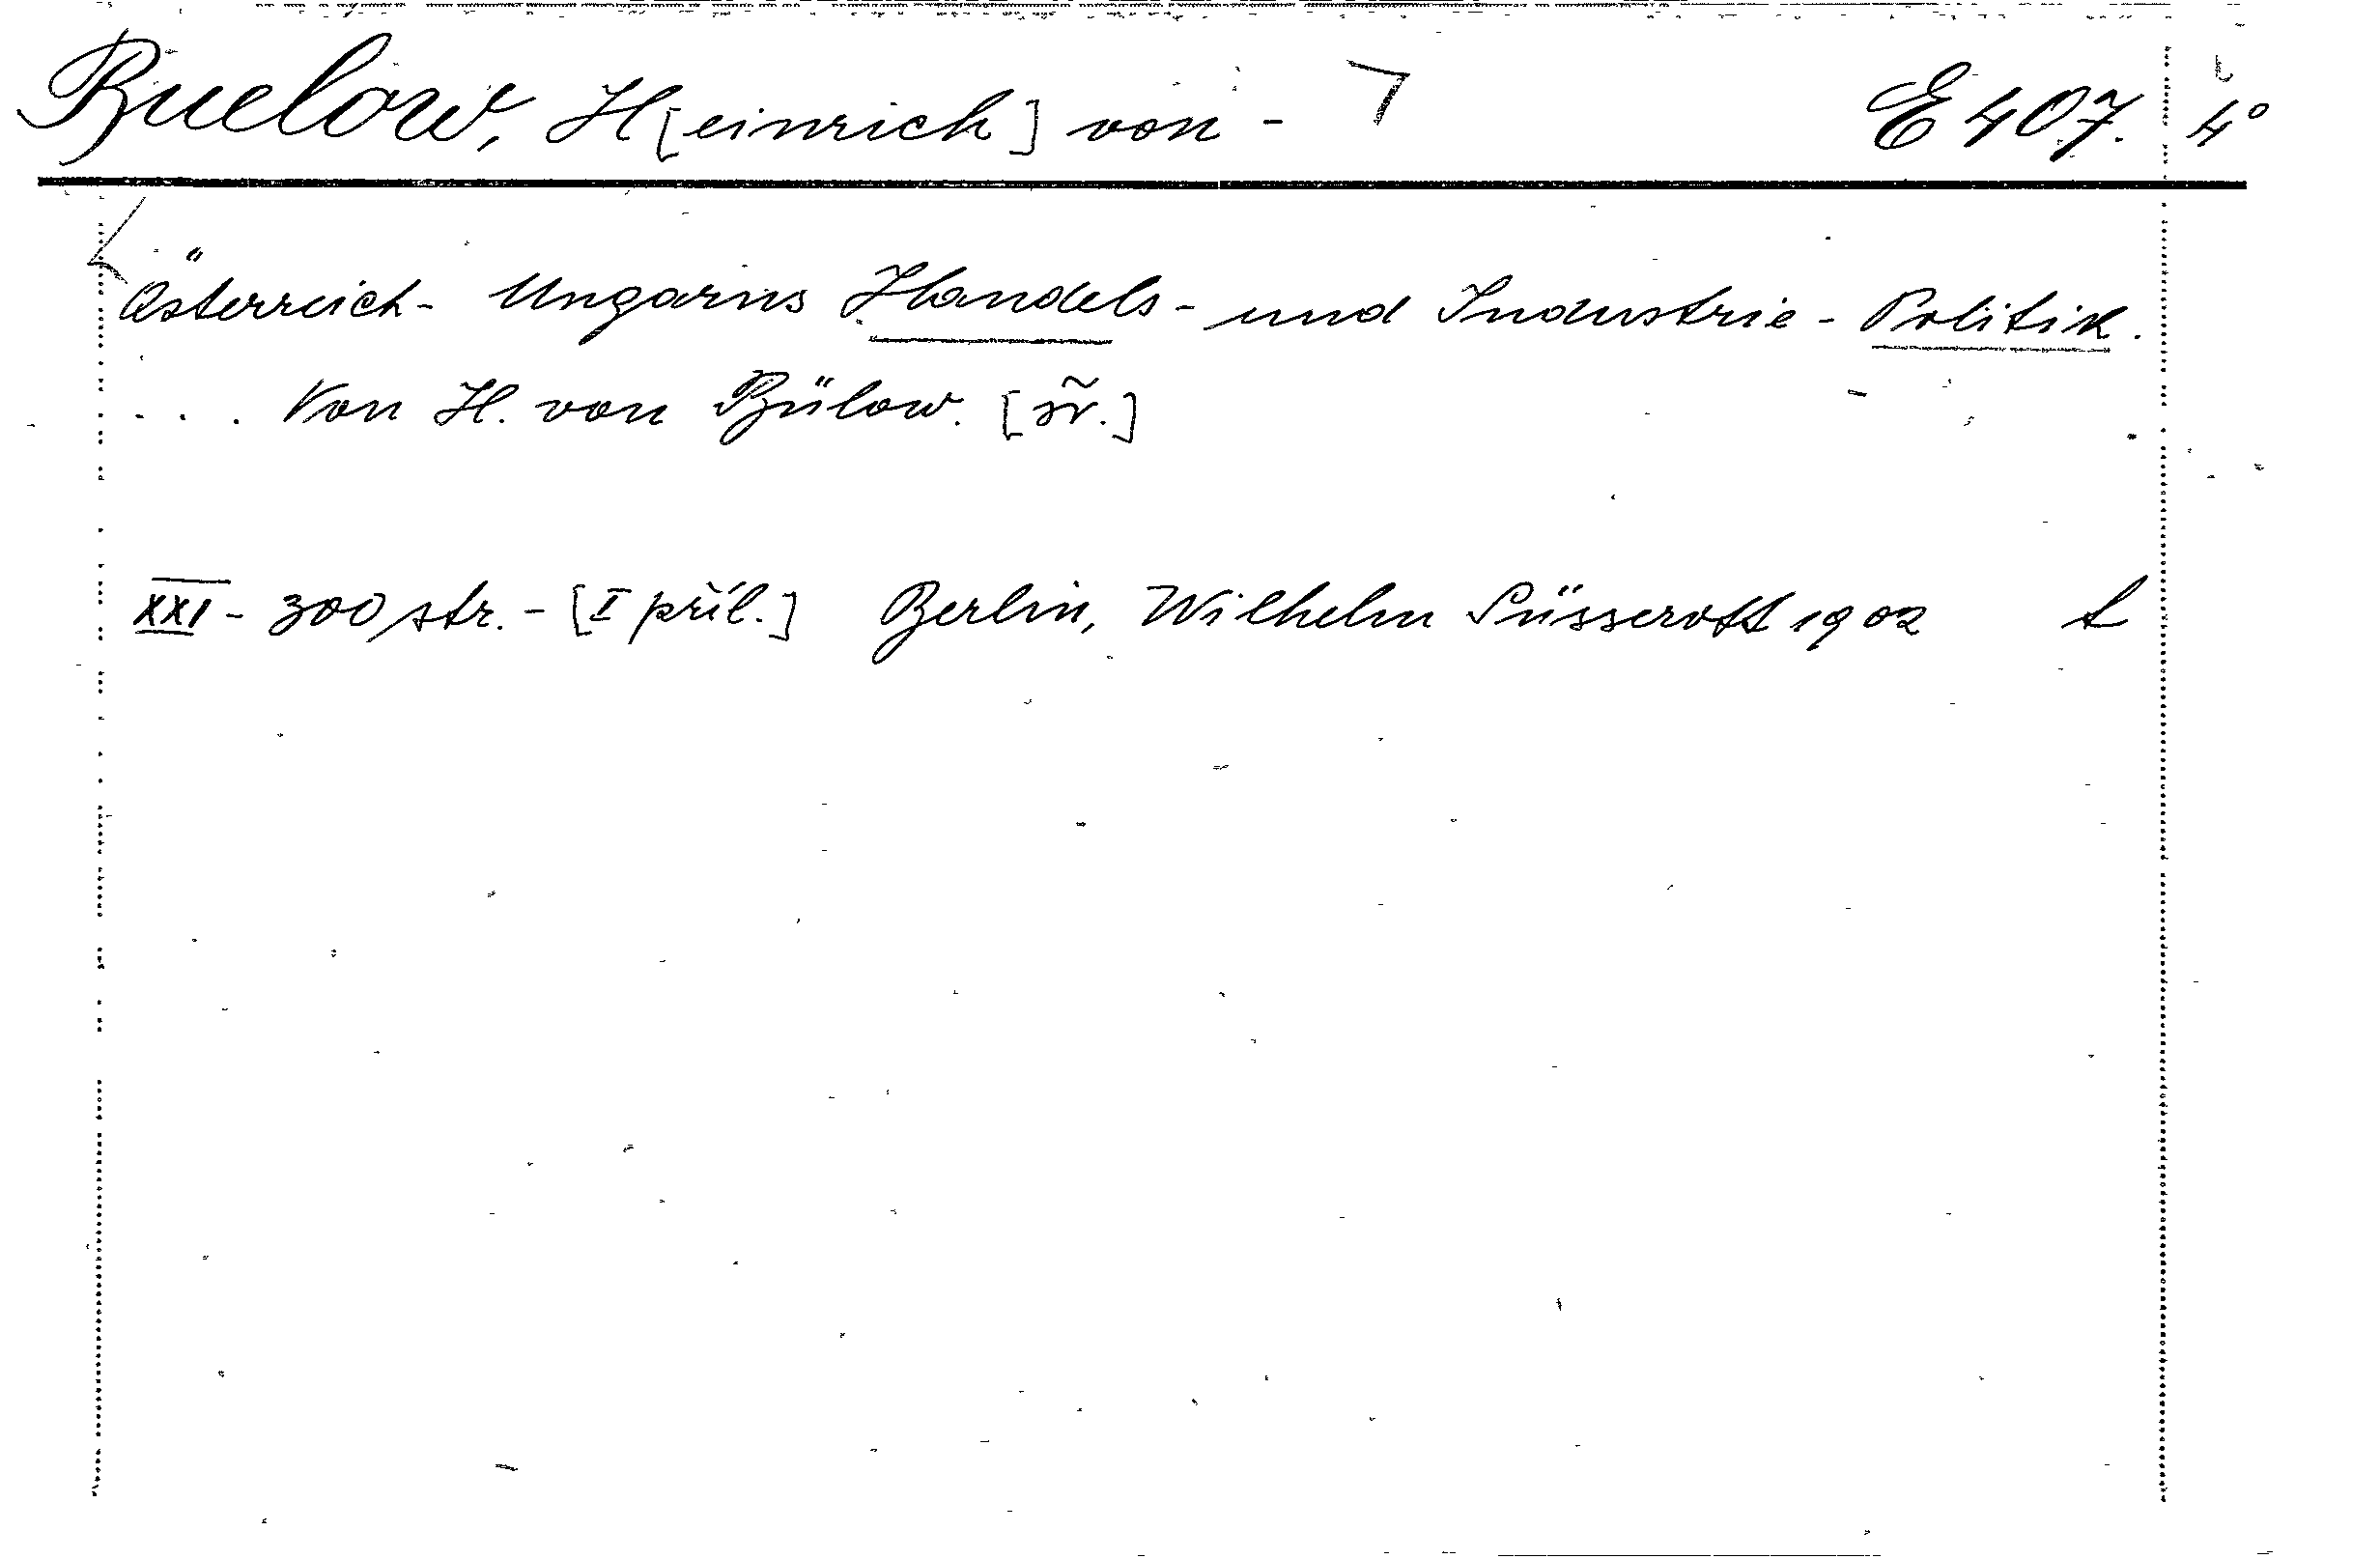 Buelow, H[einrich] von - E 407. 4°
Österreich-Ungarns Handels- und Industrie-Politik.
... Von H. von Bülow.
XXI - 300 str. - [I příl.] Berlin, Wilhelm Süsserott 1902 t